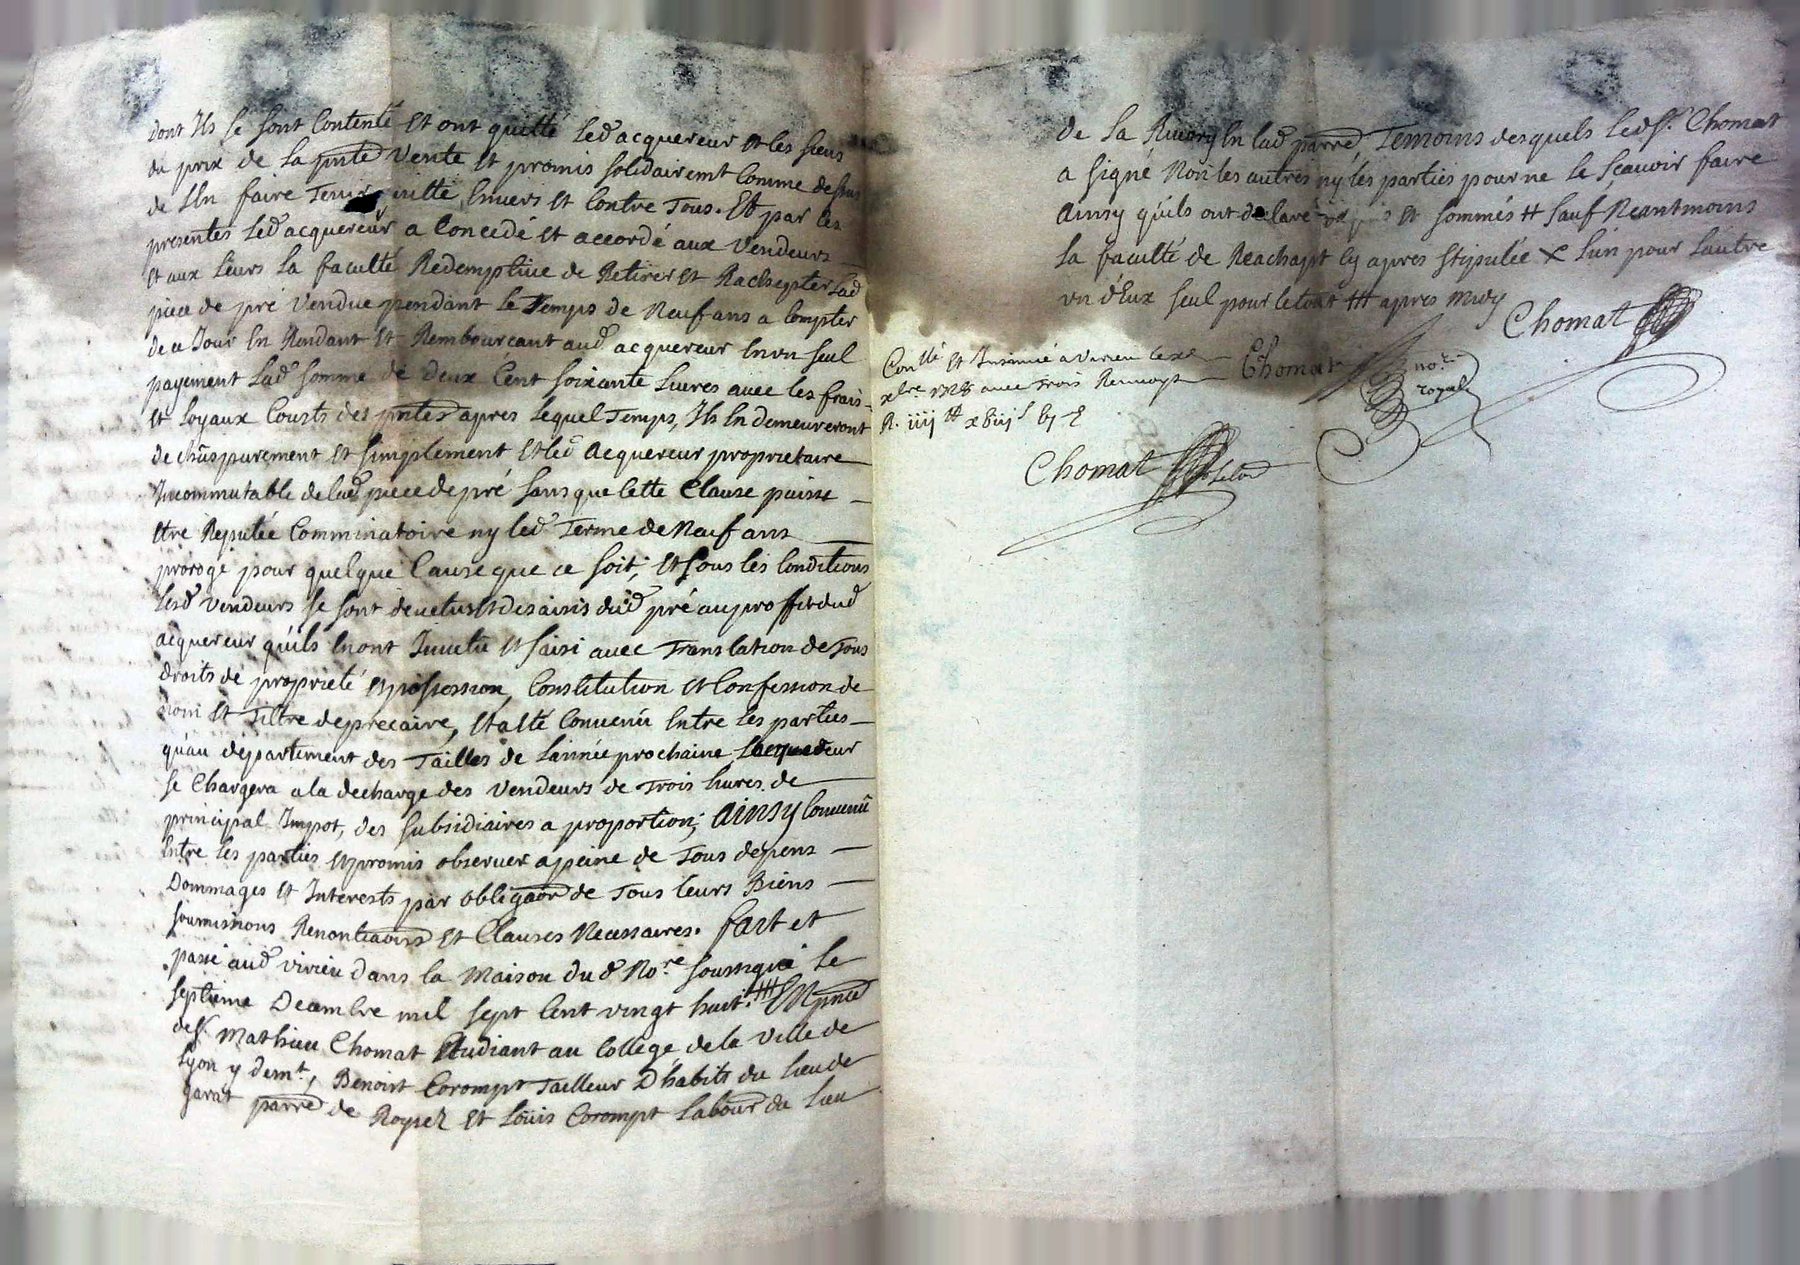 dont Ils se sont Contenté Et ont quitté led acquereur Et les siens
du prix de la pnte Vente Et promis solidairemt Comme dessus
de L'En faire Tenir quitte Envers Et Contre Tous. Et par les
presentes Led acquereur a Concedé Et accordé aux Vendeurs
Et aux leurs la faculté Redemptive de Retirer Et Rachepter lad
piece de pré Vendue pendant le Temps de Neuf ans a Compter
de ce Jour En Rendant Et Rembourcant aud acquereur En un seul
payement Lad somme de deux Cent soixante Livres avec les frais
Et Loyaux Cousts des pntes apres Lequel Temps, Ils En demeureront
de chus purement Et simplement Et led Acquereur proprietaire
Incommutable de lad piece de pré sans que Cette Clause puisse
Etre Reputée Comminatoire ny led Terme de Neuf ans
prorogé pour quelque Cause que ce soit, Et sous les Conditions
Lesd Vendeurs se sont devetus Et desaisis dud pré au proffit dud
acquereur qu'ils En ont Invetu Et saisi avec Translation de Tous
droits de proprieté Et possession, Constitution Et Confession de
nom Et Tiltre de precaire, Et a Eté Convenu Entre les parties
qu'au departement des Tailles de L'année prochaine L'acquereur
se Chargera a la decharge des Vendeurs de Trois livres de
principal Impot, des subsidiaires a proportion; Ainsy Convenu
Entre les parties Et promis observer a peine de Tous depens
Dommages Et Interests par obligaon de Tous leurs Biens
soumissions Renontiaons Et Clauses Necessaires. fait et
passé aud virieu dans la Maison du d No.re soussigné Le
septieme Decembre mil sept Cent vingt huit. ## En pnce
de sr. Mathieu Chomat Etudiant au College de la Ville de
Lyon y demt, Benoist Corompt Tailleur D'habits du Lieu de
garat parre de Roysez Et Loüis Corompt Labour du Lieu
de la Rivory En lad parre Temoins desquels led sr. Chomat
a signé Non les autres ny les parties pour ne le sçavoir faire
Ainsy qu'ils ont declaré Et sommés # sauf Neantmoins
La faculté de Reachapt Cy apres stipulée x L'un pour L'autre
un d'Eux seul pour le tout ## apres midy
Chomat
Conllé Et Insinué a Virieu Le xe
xbre 1728 avec trois Renvoys
R. iiij # xviij s
Chomat
no.re
royal
Chomat